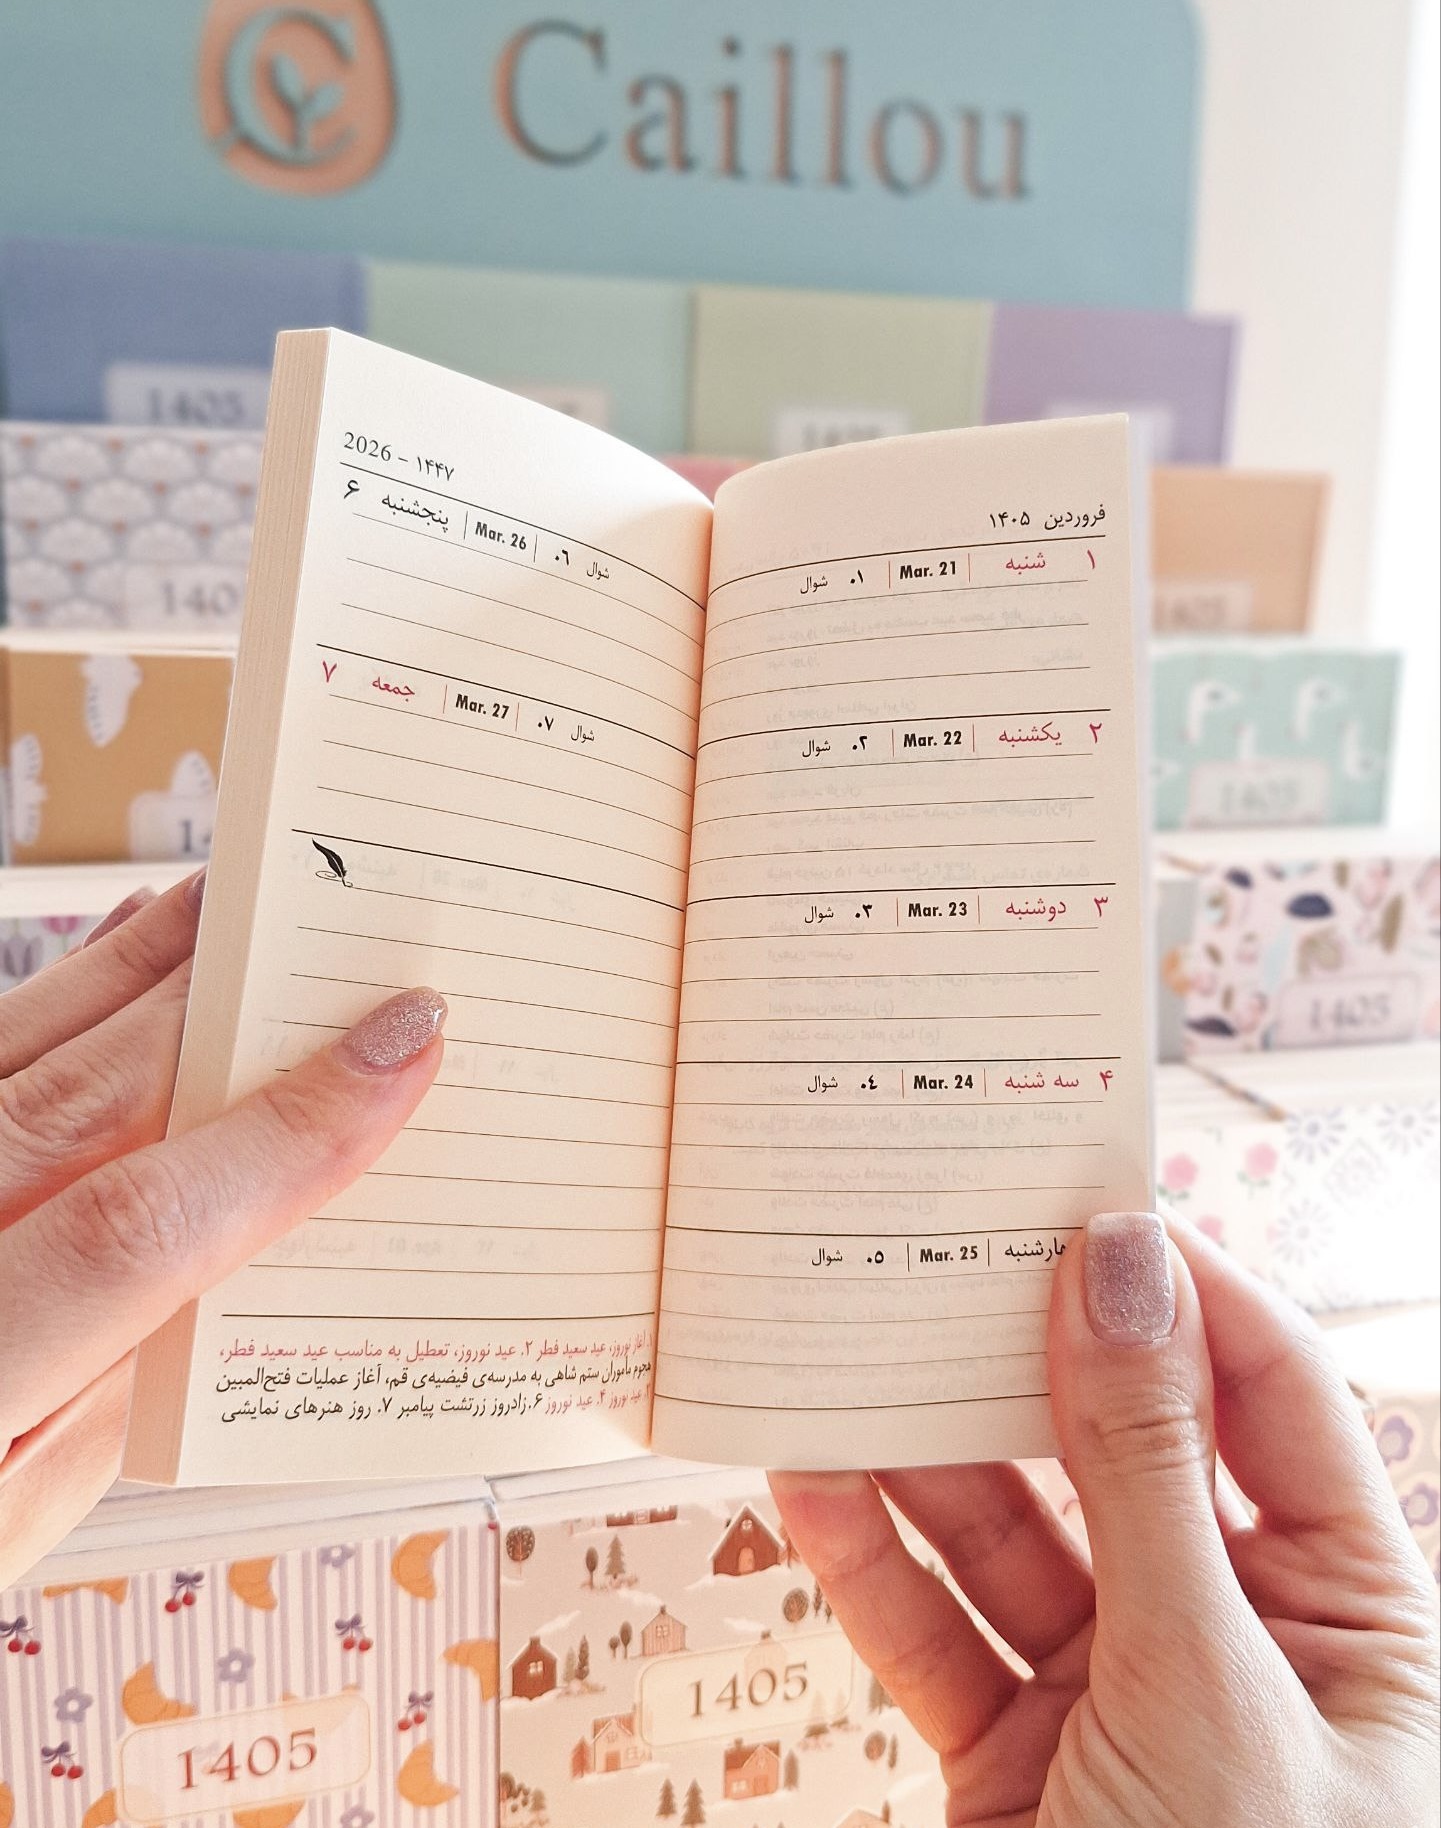 Caillou
1405
1405
1405
1405
1405
فروردین ۱۴۰۵
۱ شنبه | Mar. 21 | ۰۱ شوال
۲ یکشنبه | Mar. 22 | ۰۲ شوال
۳ دوشنبه | Mar. 23 | ۰۳ شوال
۴ سه شنبه | Mar. 24 | ۰٤ شوال
Mar. 25 | ۰٥ شوال
2026 – ۱۴۴۷
۶ پنجشنبه | Mar. 26 | ۰٦ شوال
۷ جمعه | Mar. 27 | ۰۷ شوال
۱. آغاز نوروز، عید سعید فطر ۲. عید نوروز، تعطیل به مناسب عید سعید فطر،
هجوم مأموران ستم شاهی به مدرسه‌ی فیضیه‌ی قم، آغاز عملیات فتح‌المبین
۳. عید نوروز ۴. عید نوروز ۶. زادروز زرتشت پیامبر ۷. روز هنرهای نمایشی
1405
1405